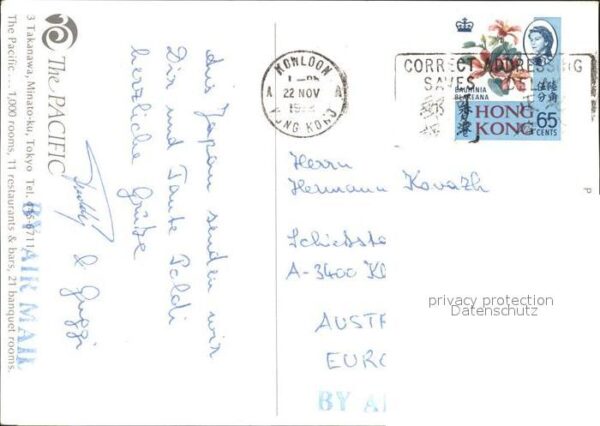 The PACIFIC
3 Takanawa, Minato-ku, Tokyo Tel.
The Pacific ... 1,000 rooms, 11 restaurants & bars, 21 banquet rooms.
BY AIR MAIL
Aus Japan senden wir
Dir und Tante Poldi
herzliche Grüße
& Guggi
KOWLOON
1 - PM
A 22 NOV A
HONG KONG
CORRECT ADDRESSING
SAVES
BAUHINIA
BLAKEANA
香港
HONG
KONG
65
CENTS
Herrn
Hermann Kovazh
Schießstä
A-3400 Kl
AUST
EURO
BY A
privacy protection
Datenschutz